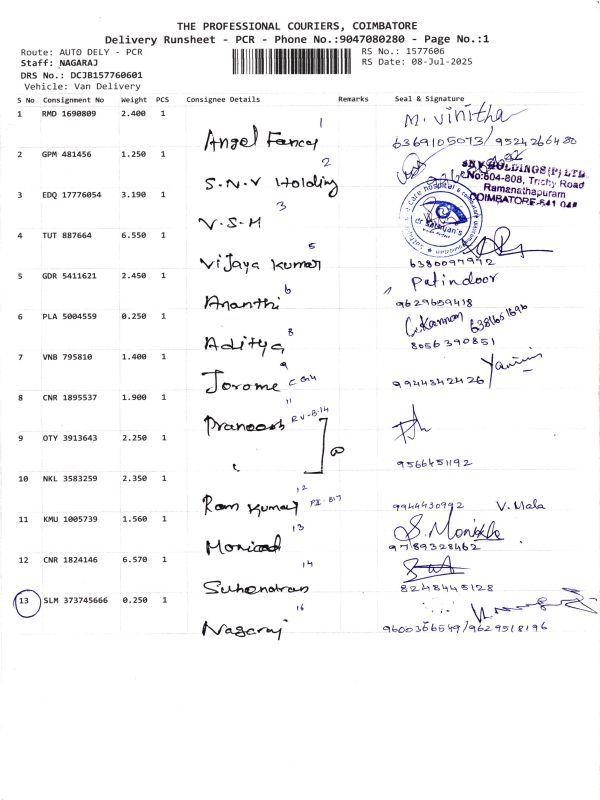 THE PROFESSIONAL COURIERS, COIMBATORE
Delivery Runsheet - PCR - Phone No.:9047080280 - Page No.:1
Route: AUTO DELY - PCR
RS No.: 1577606
Staff: NAGARAJ
RS Date: 08-Jul-2025
DRS No.: DCJB157760601
Vehicle: Van Delivery
S No Consignment No Weight PCS Consignee Details Remarks Seal & Signature
1 RMD 1690809 2.400 1
1
Angel Fancy
M. Vinitha
6369105073/9524266480
2 GPM 481456 1.250 1
2
S.N.V Holding
SNV HOLDINGS (P) LTD.
No:604-808, Trichy Road
Ramanathapuram
COIMBATORE-641 045
3 EDQ 17776054 3.190 1
3
V.S.M
4 TUT 887664 6.550 1
5
Vijaya Kumar
6380097992
5 GDR 5411621 2.450 1
6
Ananthi
Patindoor
9629659418
6 PLA 5004559 0.250 1
8
Aditya
C. Kannan 6381651696
8056390851
7 VNB 795810 1.400 1
9
Jorome
Yamini
9944842426
8 CNR 1895537 1.900 1
11
RV-B-14
9 OTY 3913643 2.250 1
9566451192
10 NKL 3583259 2.350 1
12
Ram Kumar
9944430992 V. Mala
11 KMU 1005739 1.560 1
13
9789328462
12 CNR 1824146 6.570 1
14
Suhendran
8248445128
13 SLM 373745666 0.250 1
16
Nagaraj
9600366549/9629518196